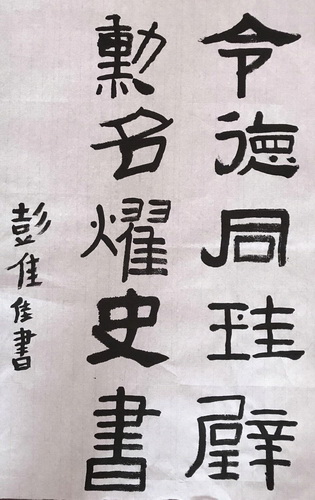 令德同珪璧
勳名燿史書
彭佳佳書